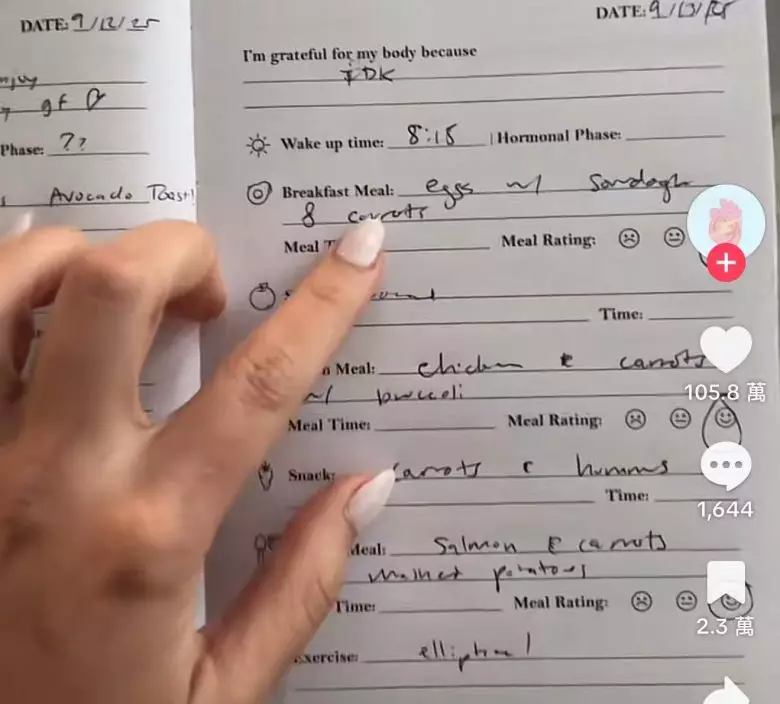 DATE: 9/12/25
DATE: 9/13/25
I'm grateful for my body because
IDK
gf
Phase: ??
Wake up time: 8:15 | Hormonal Phase:
Avocado Toast!
Breakfast Meal: eggs w/
8 carrots
Meal Meal Rating:
Time:
Meal: chicken & carrots
w/ broccoli
Meal Time: Meal Rating:
Snack: carrots & hummus
Time:
Meal: Salmon & carrots
potatoes
Time: Meal Rating:
Exercise: elliptical
105.8 萬
1,644
2.3 萬